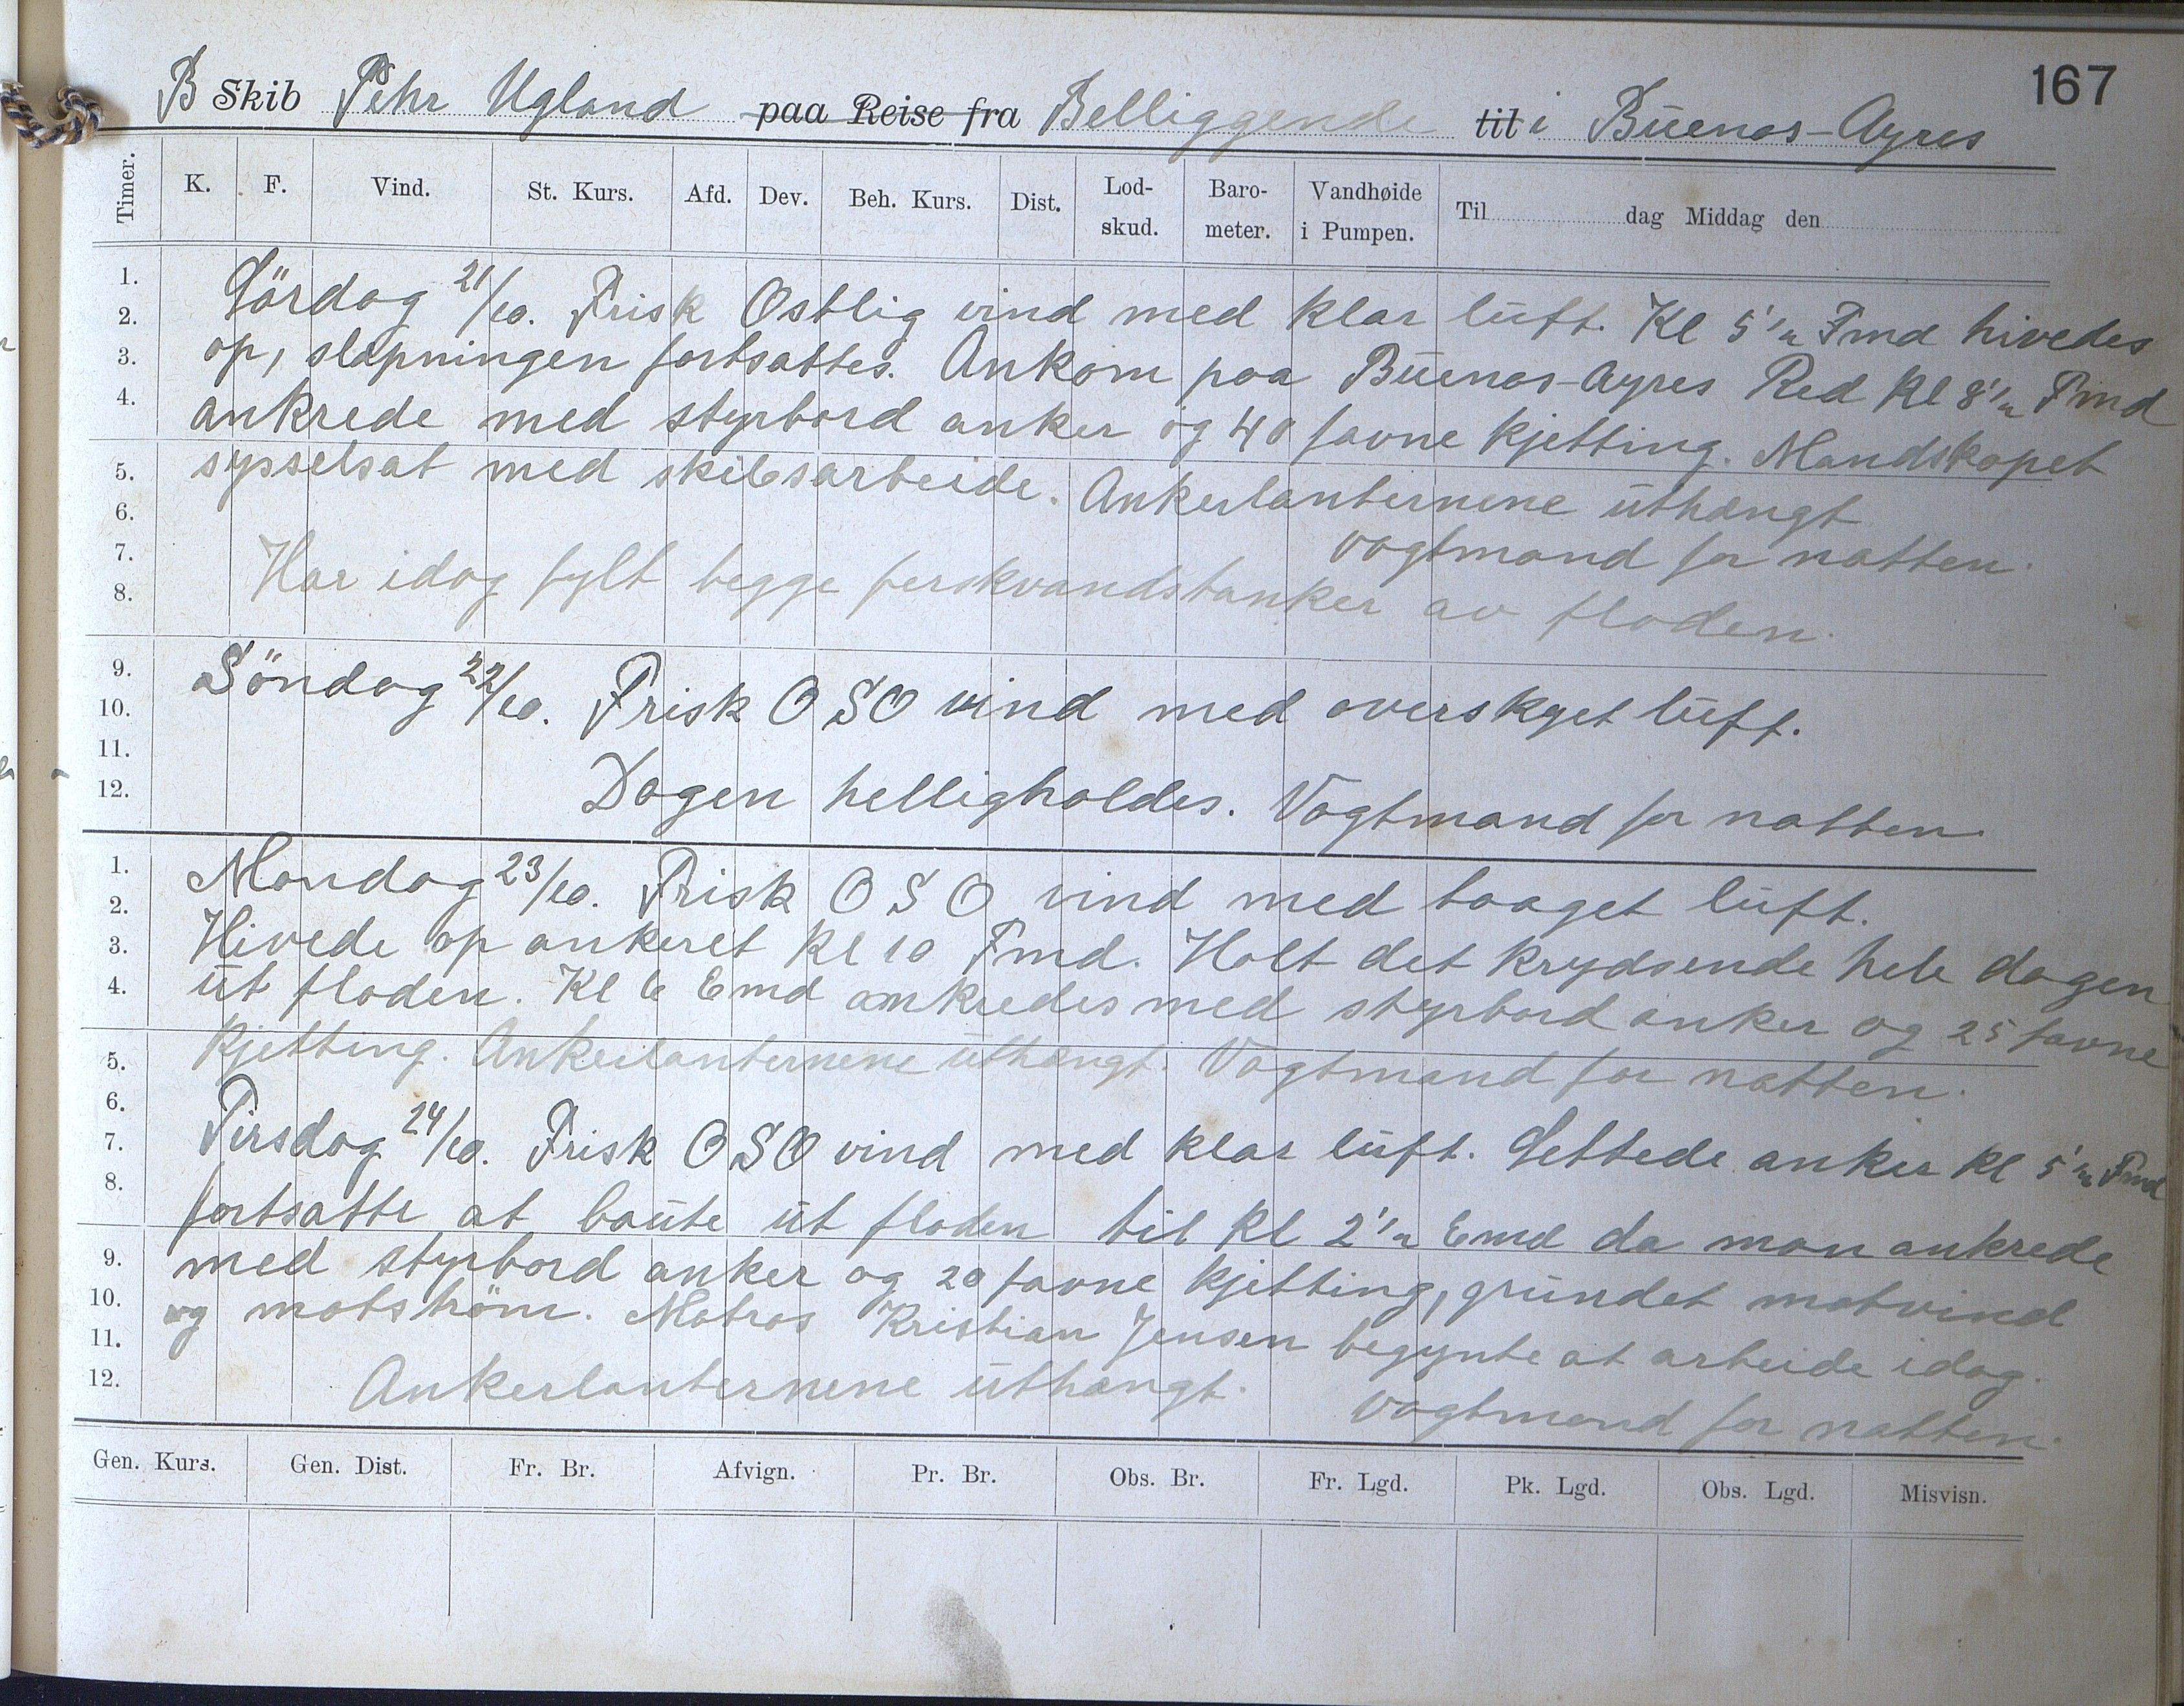 167
B Skib Pehr Ugland paa Reise fra Belliggende til i Büenos-Ayres
Timer. K. F. Vind. St. Kurs. Afd. Dev. Beh. Kurs. Dist. Lod-skud. Baro-meter. Vandhøide i Pumpen. Til dag Middag den
1.
2.
3.
4.
5.
6.
7.
8.
9.
10.
11.
12.
1.
2.
3.
4.
5.
6.
7.
8.
9.
10.
11.
12.
Lördag 21/10. Frisk Ostlig vind med klar lüft. Kl 5 1/2 Fmd hivedes
op, slæpningen fortsattes. Ankom paa Büenos-Ayres Red Kl 8 1/2 Fmd
ankrede med styrbord anker og 40 favne kjetting. Mandskapet
sysselsat med skibsarbeide. Ankerlanternene üthængt
vagtmand for natten.
Har idag fylt begge ferskvandstanker av floden.
Söndag 22/10. Frisk OSO vind med overskyet lüft.
Dagen helligholdes. Vagtmand for natten.
Mandag 23/10. Frisk OSO vind med taaget lüft.
Hivede op ankeret Kl 10 Fmd. Holt det krydsende hele dagen
üt floden. Kl 6 Emd ankredes med styrbord anker og 25 favne
kjetting. Ankerlanternene üthængt. Vagtmand for natten.
Tirsdag 24/10. Frisk OSO vind med klar lüft. Lettede anker kl 5 1/2 Fmd
fortsatte at baüte üt floden til kl 2 1/2 Emd da man ankrede
med styrbord anker og 20 favne kjetting, gründet motvind
og motström. Matros Kristian Jensen begynte at arbeide idag.
Ankerlanternene üthængt. Vagtmand for natten.
Gen. Kurs. Gen. Dist. Fr. Br. Afvign. Pr. Br. Obs. Br. Fr. Lgd. Pk. Lgd. Obs. Lgd. Misvisn.